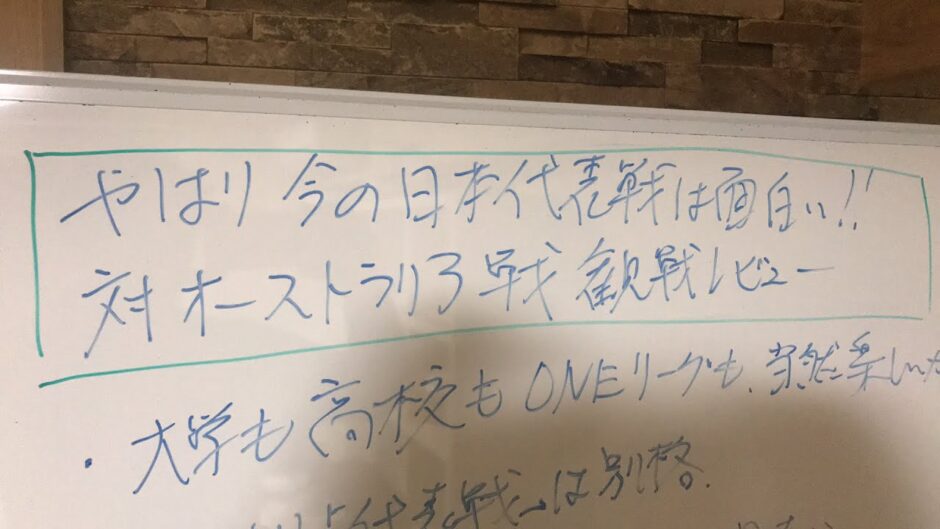 やはり今の日本代表戦は面白い!!
対オーストラリア戦 観戦レビュー
・大学も高校もONEリーグも、当然楽しいが
代表戦は別格.